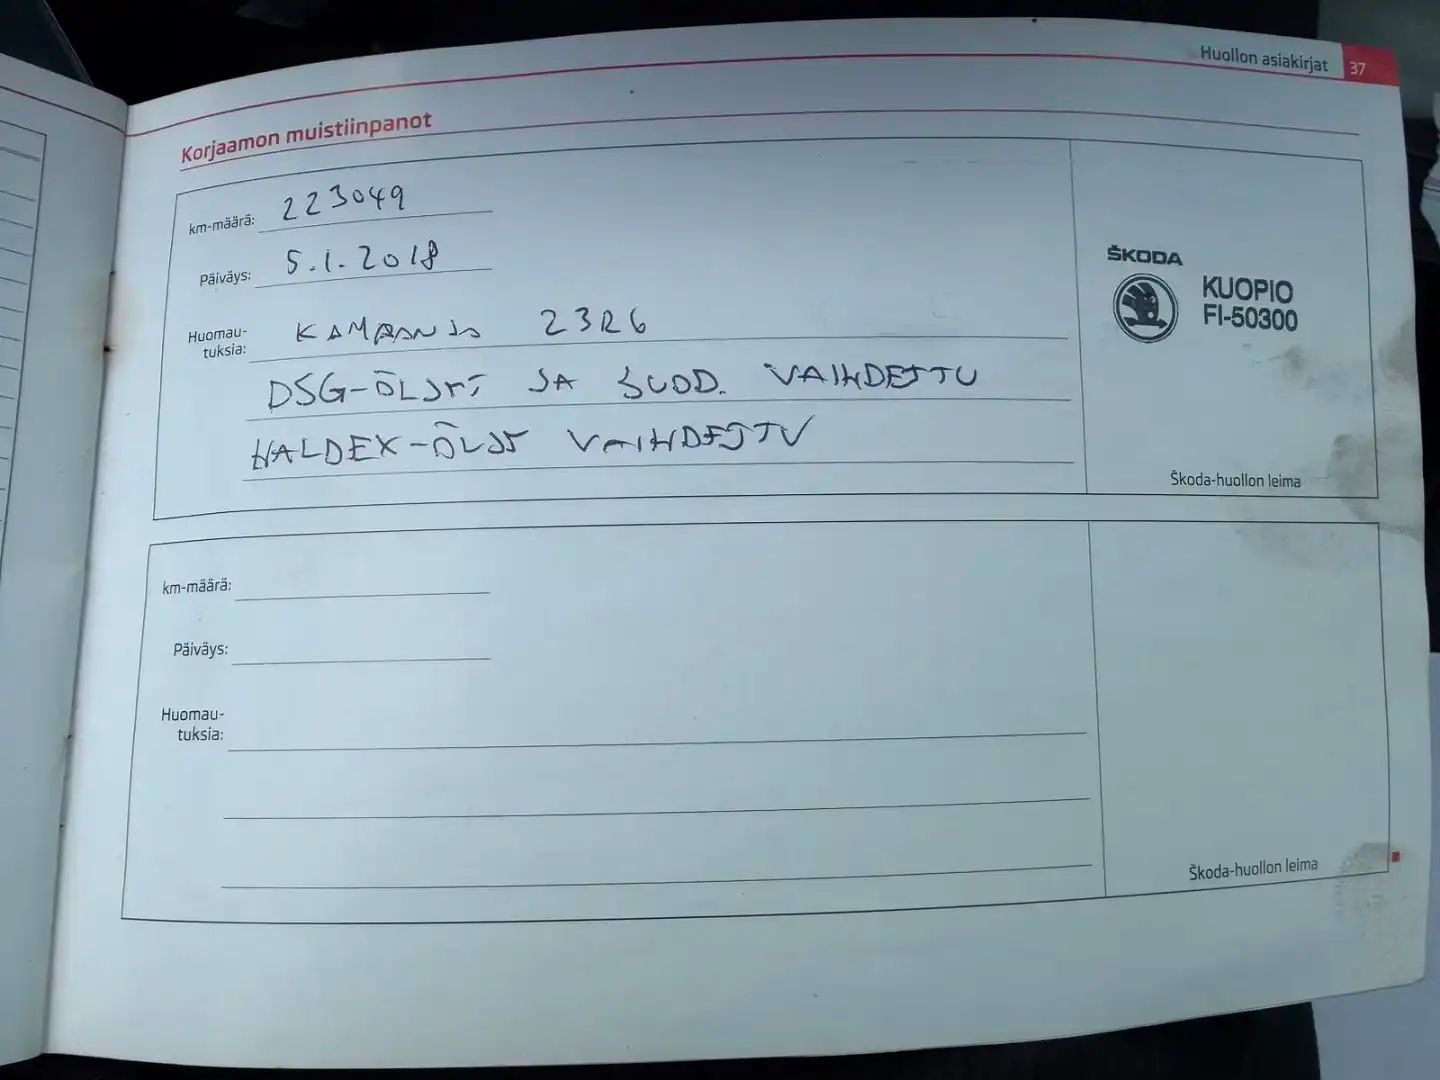 Huollon asiakirjat 37
Korjaamon muistiinpanot
km-määrä: 223049
Päiväys: 5.1.2018
Huomau-
tuksia: KAMPANJA 23R6
DSG-ÖLJYT JA SUOD. VAIHDETTU
HALDEX-ÖLJY VAIHDETTU
ŠKODA
KUOPIO
FI-50300
Škoda-huollon leima
km-määrä:
Päiväys:
Huomau-
tuksia:
Škoda-huollon leima